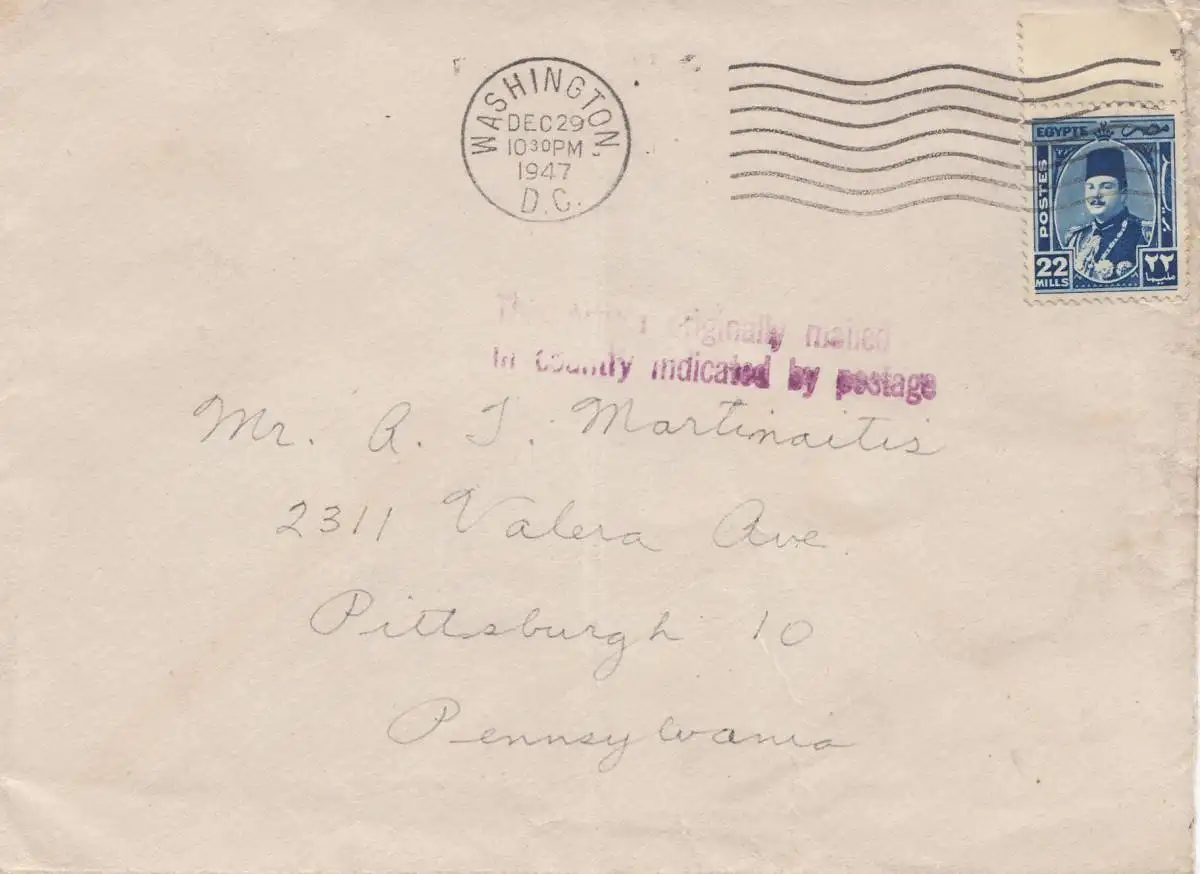 WASHINGTON
DEC 29
10 30 PM
1947
D.C.
EGYPTE مصر
POSTES
22
MILLS
٢٢
مليما
originally mailed
in country indicated by postage
Mr. A. J. Martinaitis
2311 Valera Ave.
Pittsburgh 10
Pennsylvania